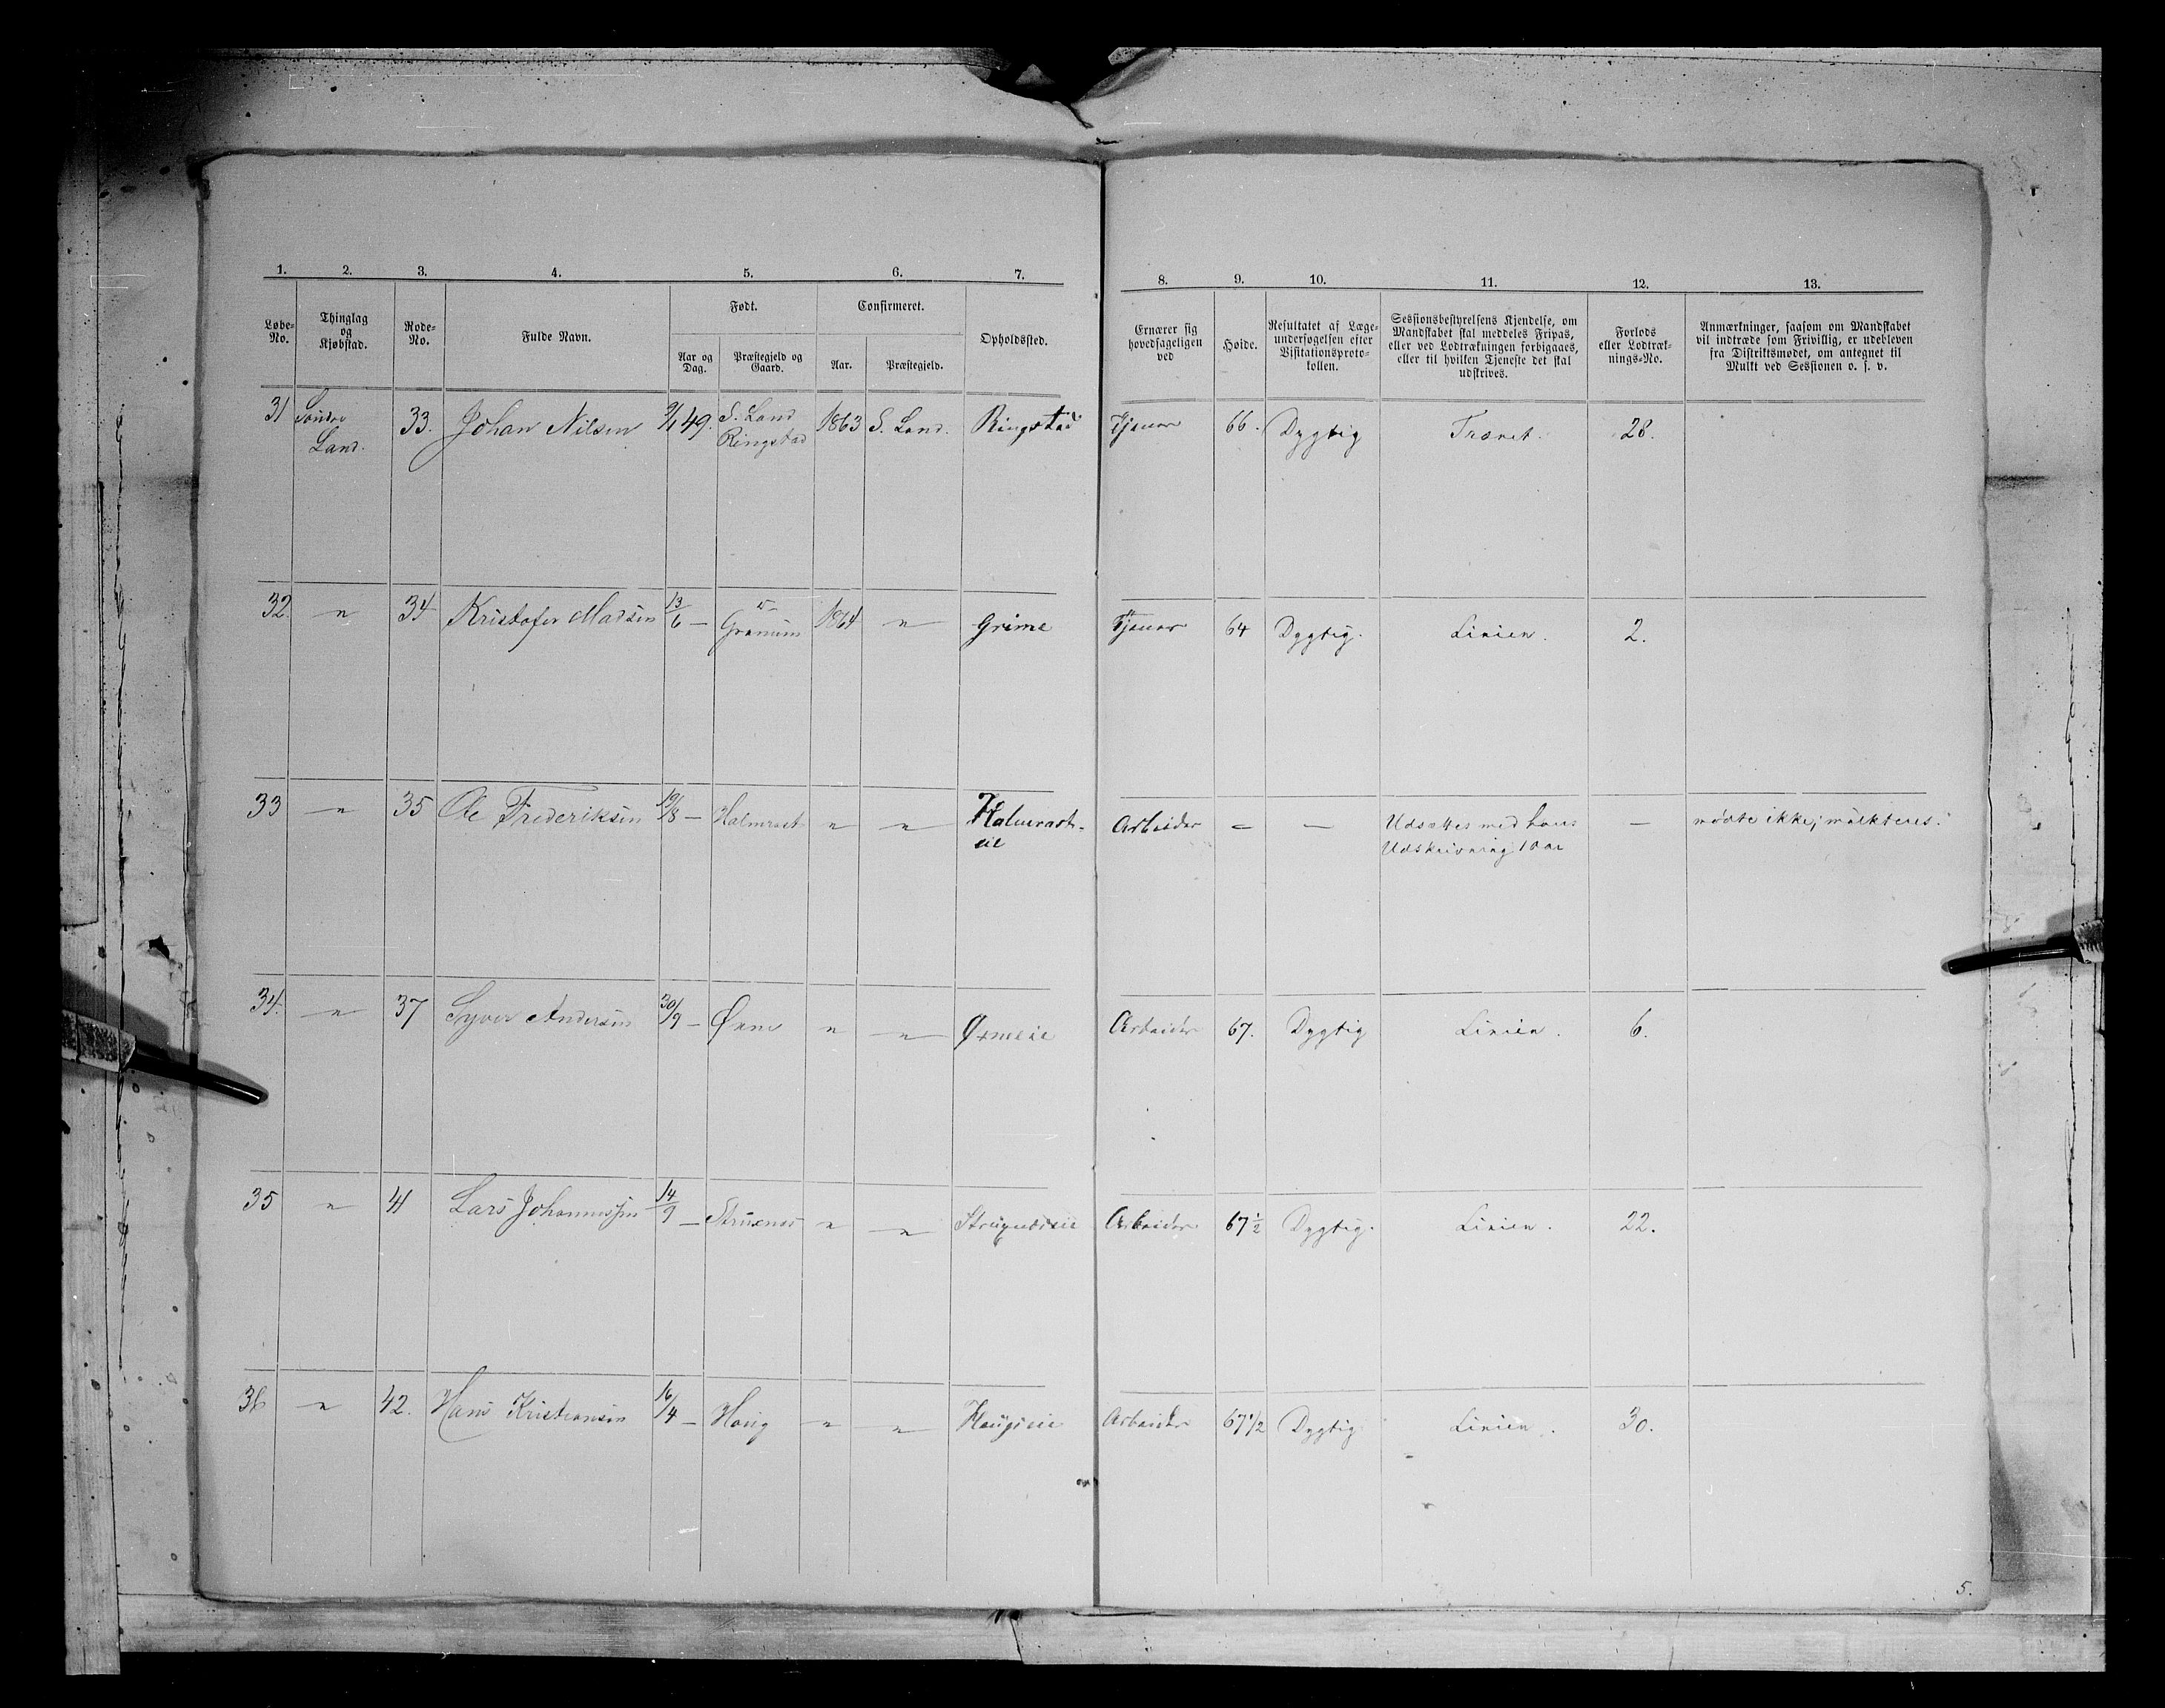 1. 2. 3. 4. 5. 6. 7.
Løbe-No. Thinglag og Kjøbstad. Rode-No. Fulde Navn. Født. Confirmeret. Opholdssted.
Aar og Dag. Præstegjeld og Gaard. Aar. Præstegjeld.
8. 9. 10. 11. 12. 13.
Ernærer sig hovedsageligen ved Høide. Resultatet af Lægeundersøgelsen efter Visitationsprotokollen. Sessionsbestyrelsens Kjendelse, om Mandskabet skal meddeles Fripas, eller ved Lodtrækningen forbigaaes, eller til hvilken Tjeneste det skal udskrives. Forlods eller Lodtræknings-No. Anmærkninger, saasom om Mandskabet vil indtræde som Frivillig, er udebleven fra Distriktsmødet, om antegnet til Mulkt ved Sessionen o. s. v.
31 Søndre Land. 33. Johan Nilsen 9/1 49. S. Land Ringstad 1863 S. Land. Ringstad Tjener 66. Dygtig Trænet. 28.
32. " 34 Kristofer Madsen 13/6 — " Granum 1864 " Grime Tjener 64 Dygtig. Linien. 2.
33 " 35 Ole Frederiksen 19/8 — Halmrast " " Halmrasteie Arbeider — — Udsættes med hans Udskrivning 1 Aar — mødte ikke; mulkteres.
34. " 37 Syver Andersen 30/9 — Ørne " " Ørneeie Arbeider 67. Dygtig Linien. 6.
35 " 41 Lars Johannessen 14/9 — Struxnes " " Arbeider 67 1/2 Dygtig. Linien. 22.
36 " 42. Hans Kristiansen 16/4 — Houg " " Hougseie Arbeider 67 1/2 Dygtig Linien. 30.
5.